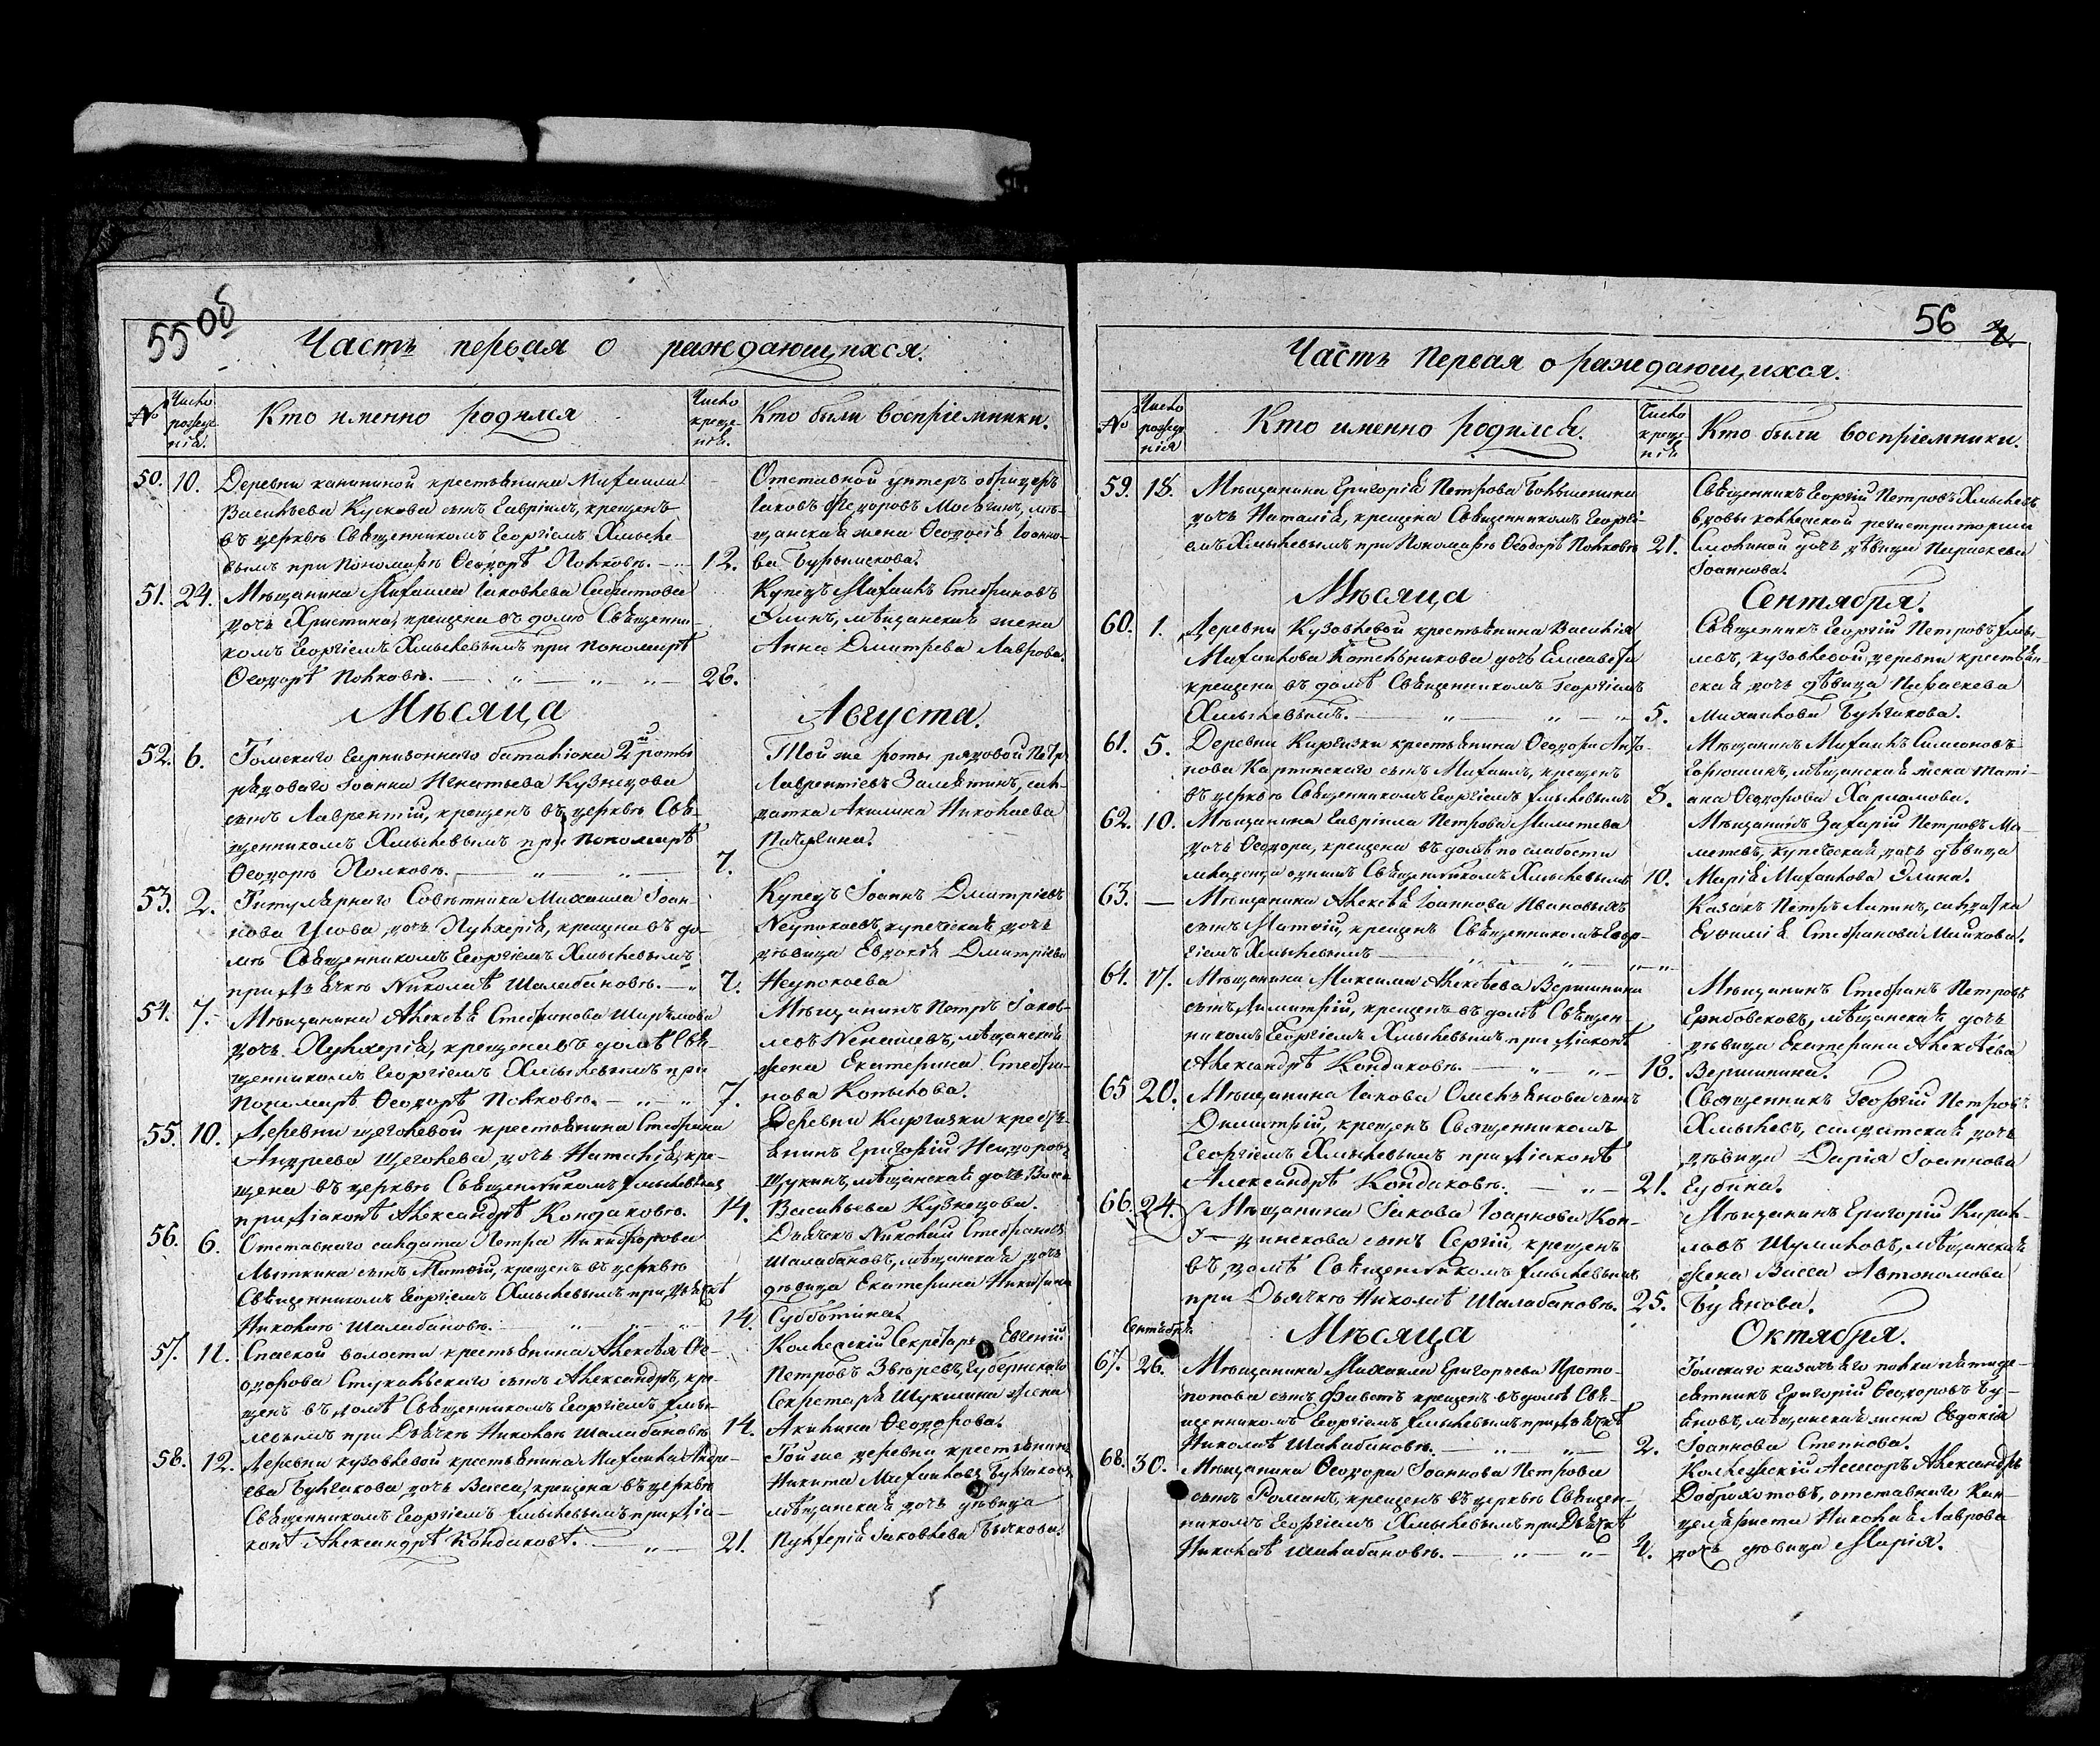 55 об
Часть первая о раждающихся.
№ Число рожде-нія. Кто именно родился Число креще-нія. Кто были воспріемники.
50. 10. Деревни каншиной крестьянина Михаила
Васильева Кускова сынъ Гавріилъ, крещенъ
въ церквѣ Священникомъ Георгіемъ Хмыле
вымъ при Пономарѣ Ѳеодорѣ Полковѣ. 12.
Отставной унтеръ офицеръ
Іаковъ Федоровъ Мосягинъ, мѣ-
щанская жена Ѳеодосія Іоанно-
ва Бурмыскова.
51. 24. Мѣщанина Михаила Іаковлева
дочь Христина, крещена въ домѣ Священни-
комъ Георгіемъ Хмылевымъ при пономарѣ
Ѳеодорѣ Полковѣ. 26.
Купецъ Михаилъ Стефановъ
Элинъ, мѣщанская жена
Анна Дмитрева Лаврова.
Мѣсяца Августа.
52. 6. Томскаго Гарнизоннаго баталіона 2й роты
рядоваго Іоанна Игнатьева Кузнецова
сынъ Лаврентій, крещенъ въ церквѣ Свя-
щенникомъ Хмылевымъ при пономарѣ
Ѳеодорѣ Полковѣ. 7.
Той же роты рядовой Петръ
Лаврентіевъ Замятинъ, сол-
датка Акилина Николаева
53. 2. Титулярнаго Совѣтника Михаила Іоан-
нова Усова, дочь Пульхерія, крещена въ до-
мѣ Священникомъ Георгіемъ Хмылевымъ
при Дьячкѣ Николаѣ Шалабановѣ. 7.
Купецъ Іоаннъ Дмитріевъ
Неупокоевъ, купеческая дочь
дѣвица Евдокія Дмитріева
Неупокоева
54. 7. Мѣщанина Алексѣя Стефанова
дочь Пульхерія, крещена въ домѣ Свя-
щенникомъ Георгіемъ Хмылевымъ при
Пономарѣ Ѳеодорѣ Полковѣ. 7.
Мѣщанинъ Петръ Іаков-
левъ, мѣщанская
жена Екатерина Стефа-
нова Копылова.
55. 10. Деревни щеголевой крестьянина Стефана
Андреева Щеголева, дочь Наталія, кре-
щена въ церквѣ Священникомъ Хмылевымъ
при Діаконѣ Александрѣ Кондаковѣ. 14.
Деревни Киргизки кресть-
янинъ Григорій
Щукинъ, мѣщанская дочь Васса
Васильева Кузнецова.
56. 6. Отставнаго солдата Петра Никифорова
Лыткина сынъ Матѳій, крещенъ въ церквѣ
Священникомъ Георгіемъ Хмылевымъ при Дьячкѣ
Николаѣ Шалабановѣ. 14.
Дьячекъ Николай Стефановъ
Шалабановъ, мѣщанская дочь
дѣвица Екатерина
Субботина.
57. 11. Спаской волости крестьянина Алексѣя Ѳе-
одорова сынъ Александръ, кре-
щенъ въ домѣ Священникомъ Георгіемъ Хмы-
левымъ при Дьячкѣ Николаѣ Шалабановѣ 14.
Коллежскій Секретарь Евгеній
Петровъ Звѣревъ, Губернскаго
Секретаря Шукшина жена
Акилина Ѳеодорова.
58. 12. Деревни кузовлевой крестьянина Михаила Андре-
ева Булгакова дочь Васса, крещена въ церквѣ
Священникомъ Георгіемъ Хмылевымъ при Діа-
конѣ Александрѣ Кондаковѣ. 21.
Той же деревни крестьянинъ
Никита Михаиловъ Булгаковъ,
мѣщанская дочь дѣвица
Пулхерія Іаковлева Бычкова.
56
Часть Первая о раждающихся.
№ Число рожде-нія Кто именно родился. Число креще-нія Кто были воспріемники.
59. 18. Мѣщанина Григорія Петрова Большенина
дочь Наталія, крещена Священникомъ Георгі-
емъ Хмылевымъ при Пономарѣ Ѳеодорѣ Полковѣ 21.
Священникъ Георгій Петровъ Хмылевъ
вдовы коллежской регистраторши
Смокиной дочь дѣвица Параскева
Іоаннова.
Мѣсяца Сентября.
60. 1. Деревни Кузовлевой крестьянина Василія
Михаилова Котельникова дочь Елисавета
крещена въ домѣ Священникомъ Георгіемъ
Хмылевымъ. 5.
Священникъ Георгій Петровъ Хмы-
левъ, кузовлевой деревни крестьян-
ская дочь дѣвица Параскева
Михаилова Булгакова.
61. 5. Деревни Киргизки крестьянина Ѳеодора
нова Карпинскаго сынъ Михаилъ, крещенъ
въ церквѣ Священникомъ Георгіемъ Хмылевымъ 8.
Мѣщанинъ Михаилъ Симеоновъ
мѣщанская жена Тати-
ана Ѳеодорова Харламова.
62. 10. Мѣщанина Гавріила Петрова Маметева
дочь Ѳеодора, крещена въ домѣ по слабости
младенца однимъ Священникомъ Хмылевымъ 10.
Мѣщанинъ Захарій Петровъ Ма-
метевъ, купеческая дочь дѣвица
Марія Михаилова Элина.
63. — Мѣщанина Алексѣя Іоаннова Ивановыхъ
сынъ Матѳій, крещенъ Священникомъ Геор-
гіемъ Хмылевымъ
Казакъ Петръ Липинъ, солдатка
Евфимія Стефанова Машкова.
64. 17. Мѣщанина Максима Алексѣева Вершинина
сынъ Димитрій, крещенъ въ домѣ Священ-
никомъ Георгіемъ Хмылевымъ при Діаконѣ
Александрѣ Кондаковѣ. 18.
Мѣщанинъ Стефанъ Петровъ
Грибовсковъ, мѣщанская дочь
дѣвица Екатерина Алексѣева
Вершинина.
65 20. Мѣщанина Іакова Омельянова сынъ
Димитрій, крещенъ Священникомъ
Георгіемъ Хмылевымъ при Діаконѣ
Александрѣ Кондаковѣ. 21.
Священникъ Георгій Петровъ
Хмылевъ, салдатская дочь
дѣвица Дарія Іоаннова
Губина.
66. 24. Мѣщанина Іакова Іоаннова Кон-
динскова сынъ Сергій, крещенъ
въ домѣ Священникомъ Хмылевымъ
при Дьячкѣ Николаѣ Шалабановѣ. 25.
Мѣщанинъ Григорій Кирил-
ловъ Шумиловъ, мѣщанская
жена Васса Автономова
Буянова.
Сентября.
Мѣсяца Октября.
67. 26. Мѣщанина Михаила Григорьева Прото-
попова сынъ Фавстъ крещенъ въ домѣ Свя-
щенникомъ Георгіемъ Хмылевымъ при Дьячкѣ
Николаѣ Шалабановѣ. 2.
Томскаго казачьяго полка пятиде-
сятникъ Григорій Ѳеодоровъ Бу-
яновъ, мѣщанская жена Евдокія
Іоаннова Степнова.
68. 30. Мѣщанина Ѳеодора Іоаннова Петрова
сынъ Романъ, крещенъ въ церквѣ Священ-
никомъ Георгіемъ Хмылевымъ при Дьячкѣ
Николаѣ Шалабановѣ. 2.
Коллежскій Асессоръ Александръ
Доброхотовъ, отставнаго Кан-
целяриста Николая Лаврова
дочь дѣвица Марія.